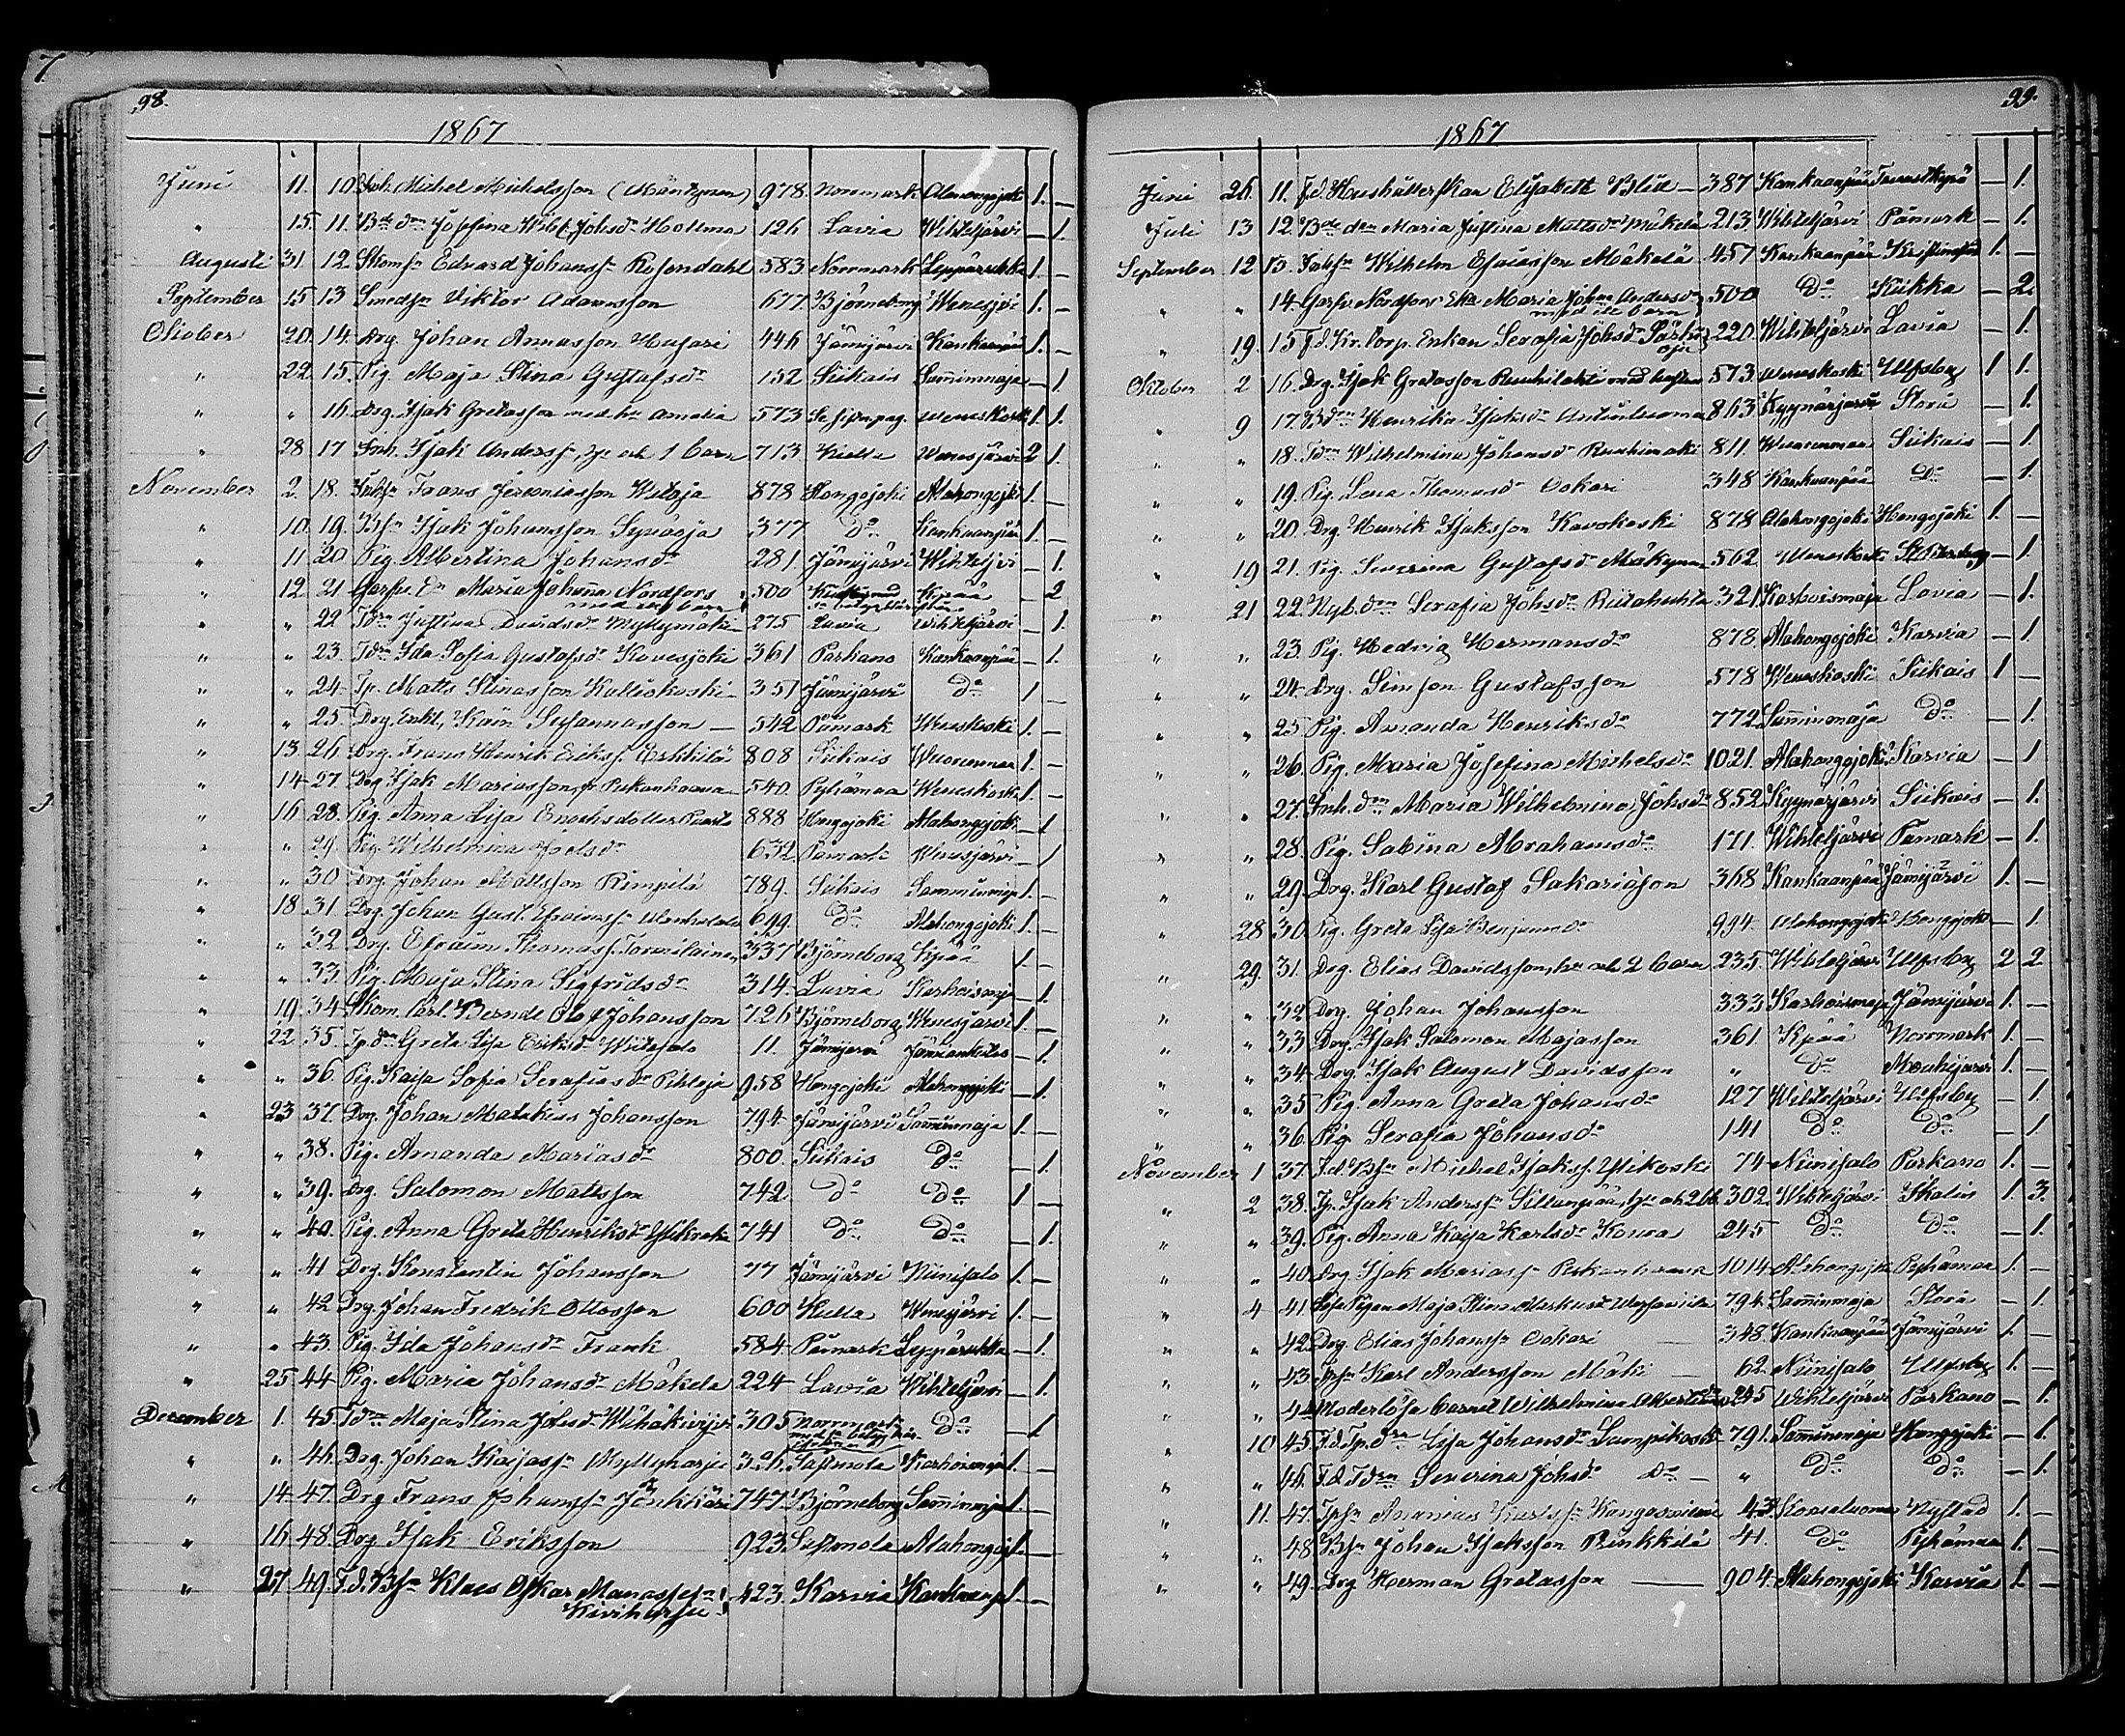 98.
1867
Juni 11. 10. Inh. Michel Michelsson (Mäntynen) 978. Norrmark Alahongojoki 1. —
" 15. 11. Bdedrn Josefina Wilh. Johsdr Hollma 126 Lavia Wihteljärvi — 1.
Augusti 31. 12. Skomsn Edvard Johanssn Rosendahl 583 Norrmark Leppäruhka 1. —
September 15 13 Smedsn Viktor Adamsson 677. Björneborg Wenesjvi 1. —
Oktober 20. 14. Drg. Johan Annasson Husari 446 Jämijärvi Kankaanpää 1. —
" 22. 15. Pig. Maja Stina Gustafsdr 152 Siikais Samminmaja — 1
" " 16. Drg. Isak Gretasson med hu Amalia 573 Weneskoski 1. 1.
" 28 17 Inh. Isak Anderss. hu och 1 barn 713 Wenesjärvi 2 1.
November 2. 18. Frans Jeremiasson Witoja 878 Hongojoki Alahongojoki 1. —
" 10. 19. Bsn Isak Johansson Syväoja 377 Do Kankaanpää 1. —
" 11 20 Pig. Albertina Johansdr 281 Jämijärvi Wihteljvi — 1.
" 12 21 Garfv. En Maria Johanna Nordfors 500 Kpää — 2
med ett barn
" " 22 Tdrn Justina Davidsdr Myllymäki 275 Lavia Wihteljärvi — 1.
" " 23. Tdrn Ida Sofia Gustafsdr Kovesjoki 361 Parkano Kankaanpää — 1.
" " 24. Tp. Matts Stinasson Kalliokoski 351 Jämijärvi Do 1 —
" " 25. Drg. Enkl. Kain Susannasson — 542 Påmark Weneskoski 1. —
" 13 26. Drg. Frans Henrik Erikss. Erkkilä 808 Siikais Wuorenmaa 1. —
" 14 27. Drg Isak Mariasson Perkonhaara 540. Pyhämaa Weneskoski 1. —
" 16 28. Pig. Anna Lisa Enochsdotter 888 Hongojoki Alahongojoki — 1
" " 29. Pig. Wilhelmina Joelsdr 632 Påmark Wenesjärvi — 1
" " 30 Drg. Johan Mattsson Rimpilä 789. Siikais Samminmaja 1. —
" 18 31. Drg. Johan Gust. 699 Do Alahongojoki 1. —
" " 32 Drg. Efraim Thomass. Tornilainen 337 Björneborg Kpää 1. —
" " 33. Pig. Maja Stina Sigfridsdr 314. Lavia Karhoismaja — 1.
" 19. 34 Skom. Carl Bernde Olof Johansson 726 Björneborg Wenesjärvi 1. —
" 22. 35. Tp.drn Greta Lisa Eriksdr Wiitasalo 11. Jämijärvi — 1.
" " 36. Pig. Kaisa Sofia Serafiasdr Pihlaja 958 Hongojoki Alahongojoki — 1.
" 23 37. Drg. Johan Mathias Johansson 794. Jämijärvi Samminmaja 1. —
" " 38. Pig. Amanda Mariasdr 800. Siikais Do — 1.
" " 39. Drg. Salomon Mattsson 742 Do Do 1 —
" " 40. Pig. Anna Greta Henriksdr 741 Do Do — 1.
" " 41 Drg. Konstantin Johansson 77 Jämijärvi Niinisalo 1. —
" " 42 Drg. Johan Fredrik Ottosson 600 Wenesjärvi 1. —
" " 43. Pig. Ida Johansdr Frank 584. Påmark Leppäruhka — 1.
" 25 44 Pig. Maria Johansdr Mäkelä 224 Lavia Wihteljärvi — 1.
December 1. 45 Tdrn Maja Stina Johsdr 305 Norrmark Do — 1
" " 46. Drg. Johan Kaisassn Myllyharju 326. Sastmola Karhoismaja 1. —
" 14 47. Drg Frans Johanssn Jänkkäri 747. Björneborg Samminmaja 1. —
" 16 48. Drg Isak Eriksson 923. Sastmola Alahongoj. 1. —
" 27 49. F.d. Bsn Klaes Oskar Manassesn 423. Karvia Kankaanp. 1. —
Kivihuhta
99.
1867
Juni 26. 11. F.d. Hushållerskan Elisabeth Blid — 387 Kankaanpää Tavastkyrö — 1.
Juli 13 12. Bdedrn Maria Justina Mattsdr Mäkelä 213. Wihteljärvi Påmark — 1.
September 12 13. Wilhelm Esaiasson Mäkelä 457 Kankaanpää Kristinestad 1. —
" " 14. Garfv. Nordfors Eka Maria Johna Andersdr 500 Do Kiikka — 2.
med ett barn
" 19. 15 F.d. Kr. Torp. Enkan Serafia Johsdr 220. Wihteljärvi Lavia — 1.
Oktober 2 16. Drg. Isak Gretasson Ruuhilahti med hustru 573. Weneskoski Ulfsby 1 1.
" 9 17. Bdrn Henrika Isaksdr Antinluoma 863 Kyynärjärvi Storå — 1.
" " 18. Tdrn Wilhelmina Johansdr Ruuhimäki 811. Wuorenmaa Siikais — 1.
" " 19. Pig. Lena Thomasdr Oskari 348 Kankaanpää Do — 1.
" " 20. Drg. Henrik Isaksson Kavokoski 878 Alahongojoki Hongojoki 1. —
" 19 21. Pig. Severina Gustafsdr Mäkynen 562 Weneskoski St Petersburg — 1.
" 21 22. Nyb.drn Serafia Johsdr Riitahuhta 321. Karhoismaja Lavia — 1.
" " 23. Pig. Hedvig Hermansdr 878. Alahongojoki Karvia — 1.
" " 24. Drg. Simson Gustafsson 578 Weneskoski Siikais 1 —
" " 25 Pig. Amanda Henriksdr 772. Samminmaja Do — 1.
" " 26. Pig. Maria Josefina Michelsdr 1021. Alahongojoki Karvia — 1
" " 27. Inh.drn Maria Wilhelmina Johsdr 852 Kyynärjärvi Siikais — 1.
" " 28. Pig. Sabina Abrahamsdr 171. Wihteljärvi Påmark — 1.
" " 29. Drg. Karl Gustaf Sakariasson 368 Kankaanpää Jämijärvi 1. —
" 28 30. Pig. Greta Lisa Benjamsdr 994. Alahongojoki Hongojoki — 1.
" 29. 31. Drg. Elias Davidsson, hu och 2 barn 235. Wihteljärvi Ulfsby 2 2
" " 32 Drg. Johan Johansson 333 Karhoismaja Jämijärvi 1. —
" " 33 Drg. Isak Salomon Majasson 361 Kpää Norrmark 1. —
" " 34. Drg. Isak August Davidsson " Do Mouhijärvi 1. —
" " 35 Pig. Anna Greta Johansdr 127 Wihteljärvi Ulfsby — 1.
" " 36. Pig. Serafia Johansdr 141 Do Do — 1.
November 1 37. F.d. Bsn Michel Isakss. Ylikoski 74 Niinisalo Parkano 1. —
" 2 38. Tp. Isak Anderssn Sillanpää, hu och 2 b. 302. Wihteljärvi Ikalis 1. 3.
" " 39. Pig. Anna Kaisa Karlsdr Koura 245 Do Do — 1.
" " 40. Drg Isak Mariass. Perkonhaara 1014 Alahongojoki Pyhämaa 1. —
" 4 41. Maja Stina Markusdr 794. Samminmaja Storå — 1
" " 42. Drg. Elias Johanssn Oskari — 348. Kankaanpää Jämijärvi 1. —
" " 43. Karl Andersson Mäki — 62. Niinisalo Ulfsby 1. —
" " 44. Moderlösa barnet Wilhelmina Albertinasdr 245 Wihteljärvi Parkano — 1.
" 10 45. F.d. Tp.drn Lisa Johansdr Lampikoski 791. Samminmaja Hongojoki — 1.
" " 46. F.d. Tdrn Severina Johsdr Do — " Do Do — 1.
" 11. 47. Tpsn Ananias Karlssn Kangasniemi 43. Kooseluoma Nystad 1. —
" " 48. Bsn Johan Isaksson Rinkkilä 41. Do Pyhämaa 1. —
" " 49. Drg Herman Gretasson — 904. Alahongojoki Karvia 1. —